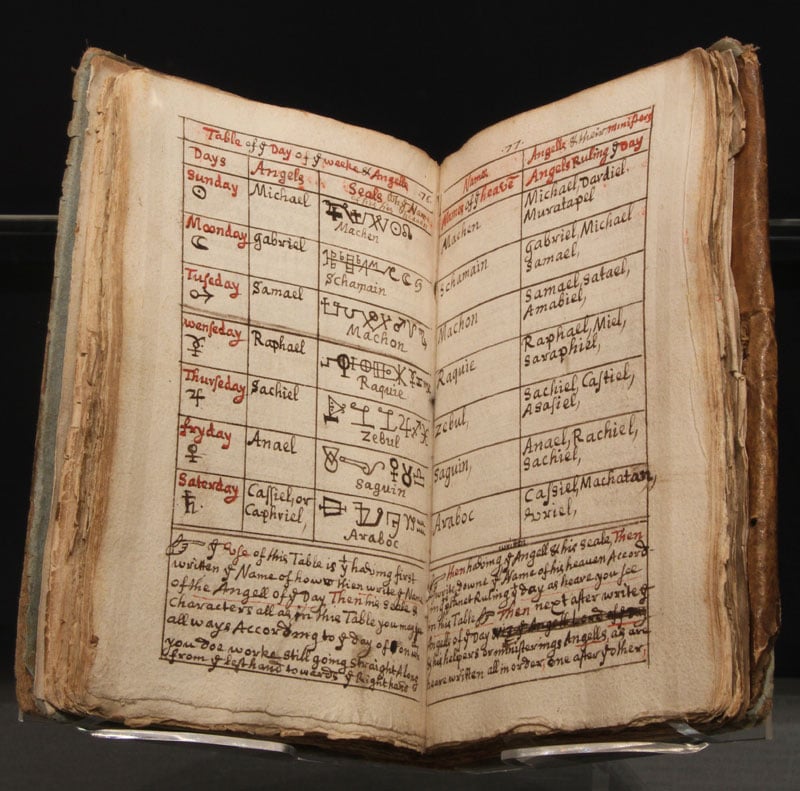 Table of ẏ Day of ẏ weeke & Angells .76.
Days Angels Seals
Sunday ☉ Michael Machen
Moonday ☾ Gabriel Schamain
Tuseday ♂ Samael Machon
wenseday ☿ Raphael Raquie
Thurseday ♃ Sachiel Zebul
fryday ♀ Anael Saguin
Saterday ♄ Cassiel, or Caphriel, Araboc
ẏ Use of this Table is ẏ having first
written ẏ Name of hower then write ẏ Name
of the Angell of ẏ Day Then his Seale &
Characters all as in this Table you may see
all ways According to ẏ day of
you doe worke still going straight Along
from ẏ left hand towards ẏ Right hand
.77.
Names Angells & their ministers
Names of ẏ heaven Angels Ruling ẏ Day
Machen Michael, Dardiel, Muratapel
Schamain Gabriel, Michael Samael,
Machon Samael, Satael, Amabiel,
Raquie Raphael, Miel, Saraphiel,
Zebul, Sachiel, Castiel, Asasiel,
Saguin, Anael, Rachiel, Sachiel,
Araboc Cassiel, Machatan, Vriel,
then having ẏ Angell & his Seale, Then
write downe ẏ Name of his heaven Accord-
ing planet Ruling ẏ day as heare you see
in this Table Then next after write ẏ
Angells of ẏ Day
his helpers or ministerings Angells, as are
heare written all in order, one after ẏ other,